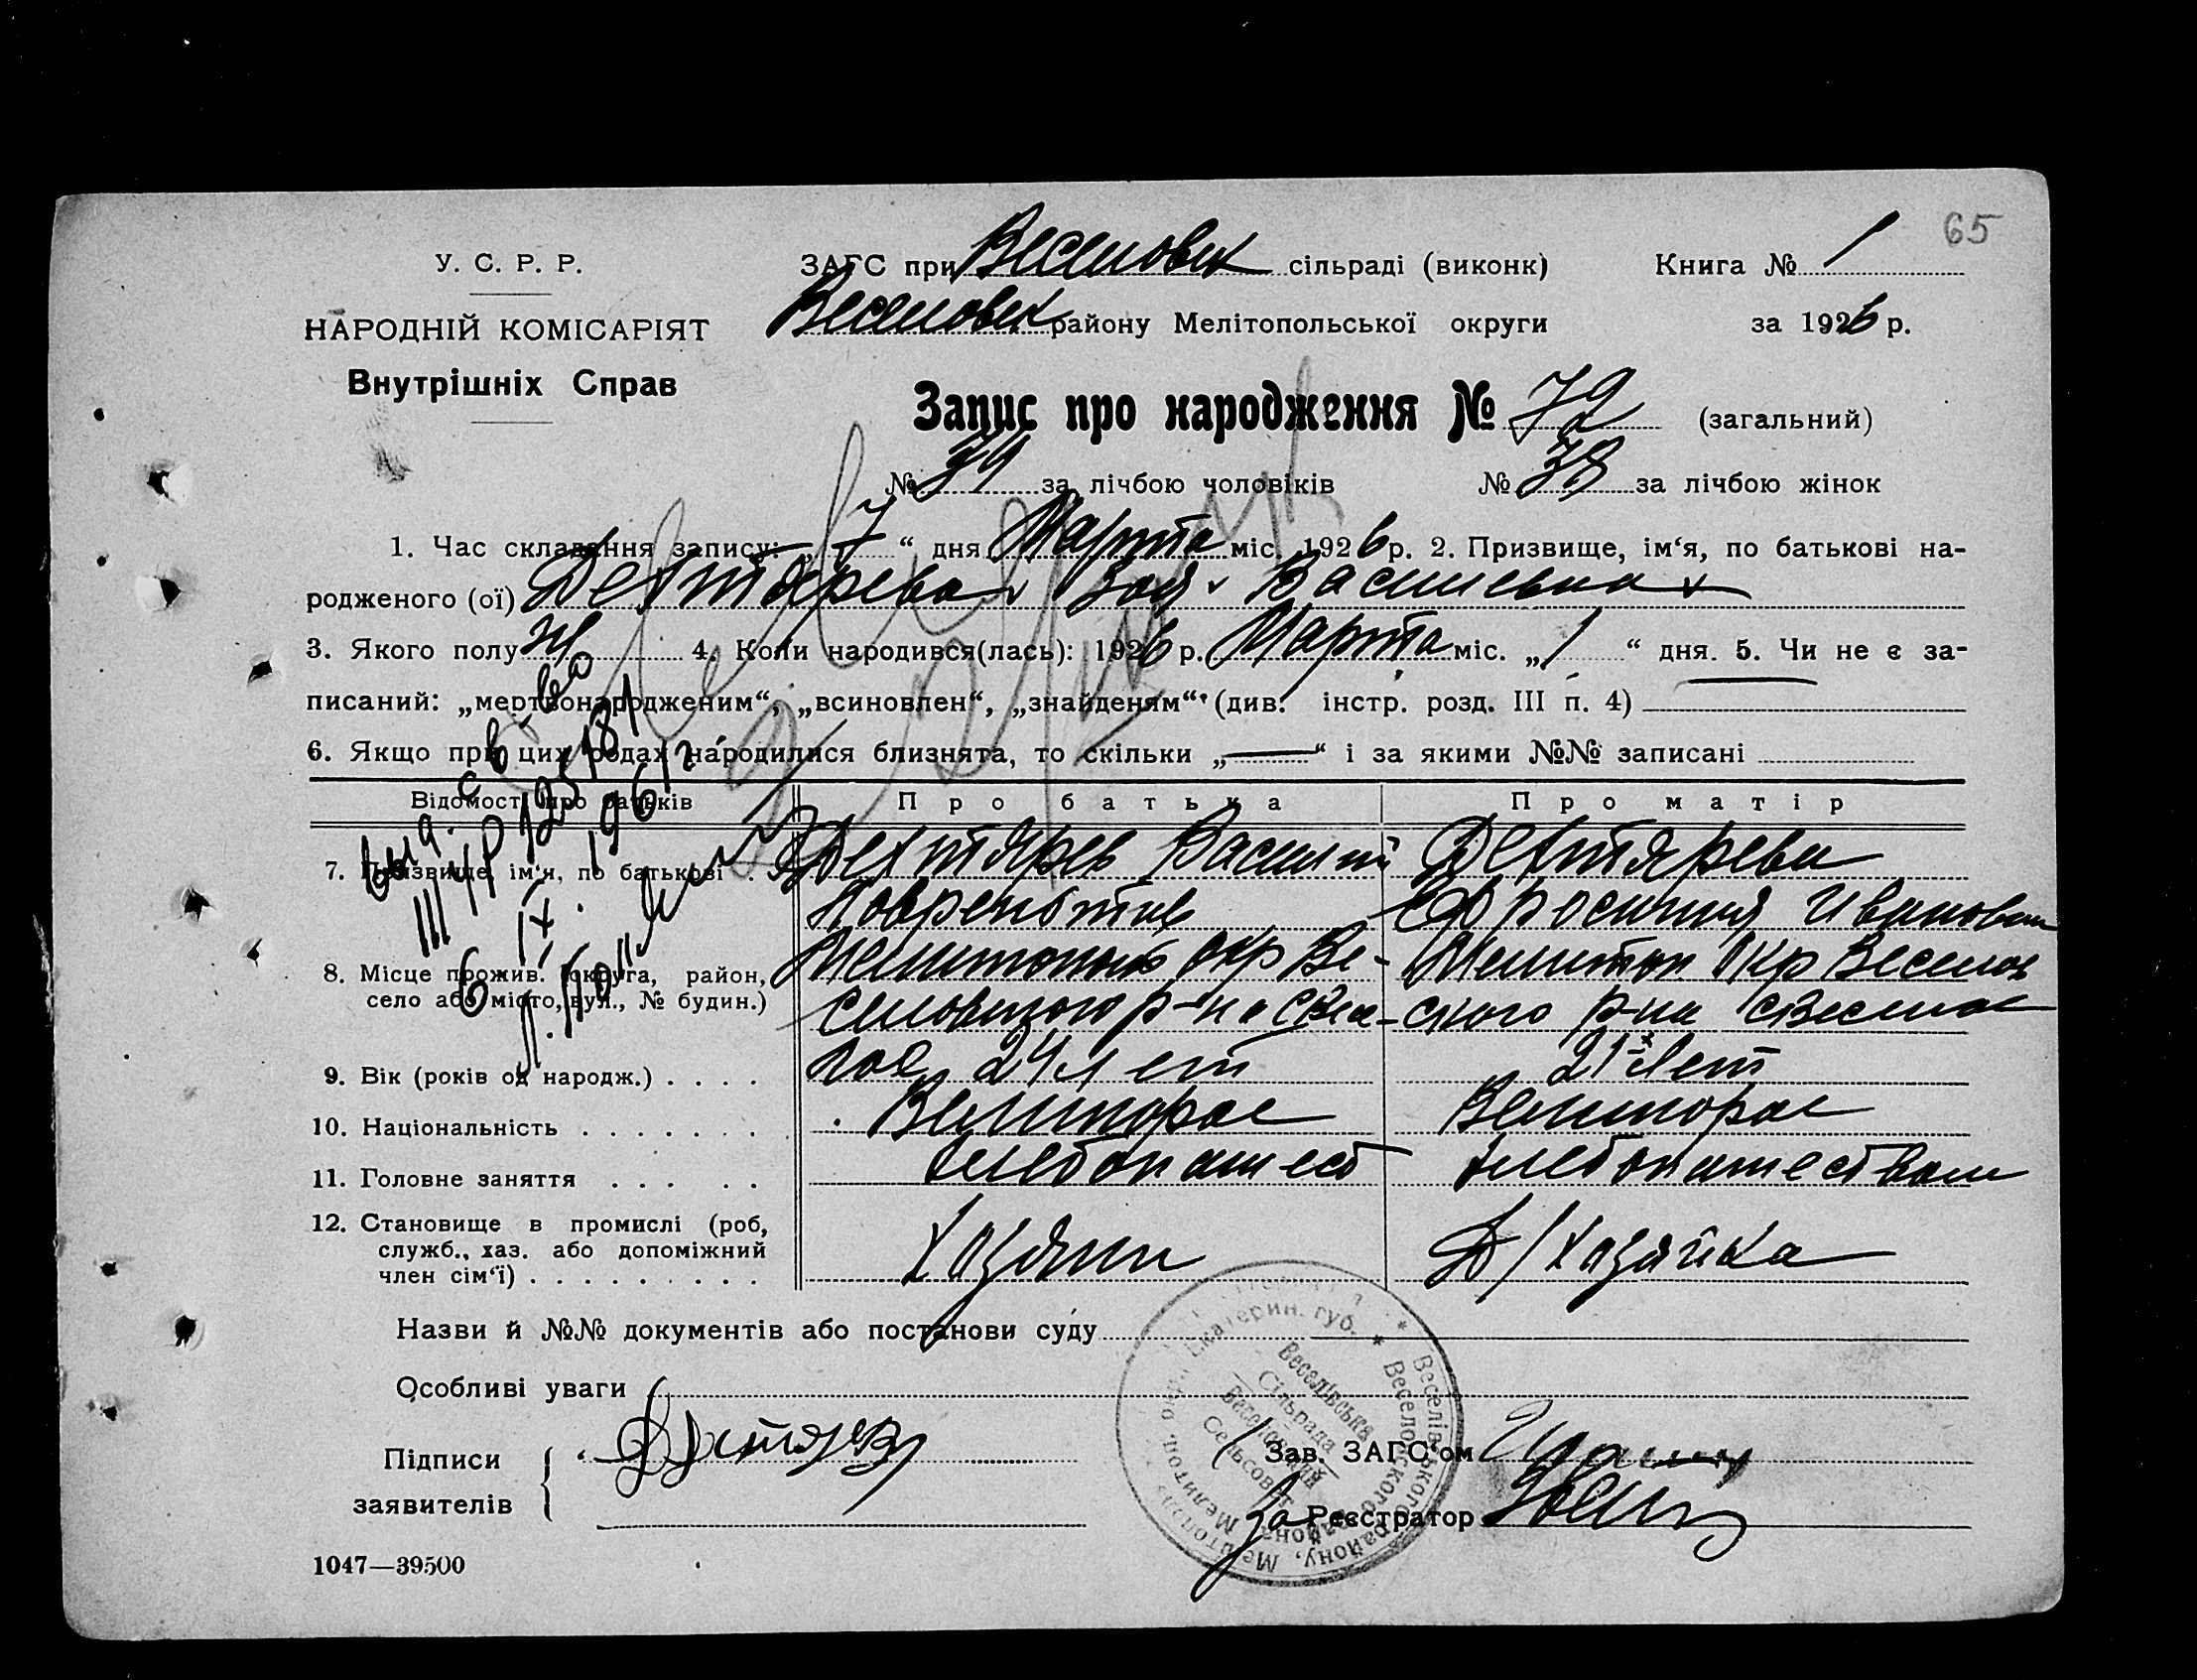 65
У. С. Р. Р.
НАРОДНІЙ КОМІСАРІЯТ
Внутрішніх Справ
ЗАГС при Веселовск сільраді (виконк)
Книга № 1
Веселовск району Мелітопольської округи
за 1926 р.
Запис про народження № 72 (загальний)
№ 34 за лічбою чоловіків № 38 за лічбою жінок
1. Час складання запису: „ 7 “ дня Марта міс. 1926 р. 2. Призвище, ім‘я, по батькові на-
родженого (ої) Дехтярева Зоя Василевна
3. Якого полу ж 4. Коли народився(лась): 1926 р. Марта міс. „ 1 “ дня. 5. Чи не є за-
писаний: „мертвонародженим“, „всиновлен“, „знайденям“ (див. інстр. розд. III п. 4)
6. Якщо при цих родах народилися близнята, то скільки „—“ і за якими №№ записані
Відомості про батьків
Про батька
Про матір
7. Призвище, ім‘я, по батькові
Дехтярев Василий
Лаврентьев
Дехтярева
Ефросиния Ивановна
8. Місце прожив. (округа, район,
село або місто, вул., № будин.)
Мелитополь окр Ве-
селовского р-на с Весе-
лое
Мелитоп Окр Веселов
ского р-на с Веселое
9. Вік (років од народж.)
24 лет
21 лет
10. Національність
Великорос
Великорос
11. Головне заняття
хлебопашест
хлебопашеством
12. Становище в промислі (роб,
служб., хаз. або допоміжний
член сім‘ї)
Хозяин
Д/хозяйка
Назви й №№ документів або постанови суду
Особливі уваги
Підписи
заявителів
Дехтярев
Зав. ЗАГС‘ом
За Реєстратор
Веселівська
Сільрада
Веселовский
Сельсовет
1047—39500